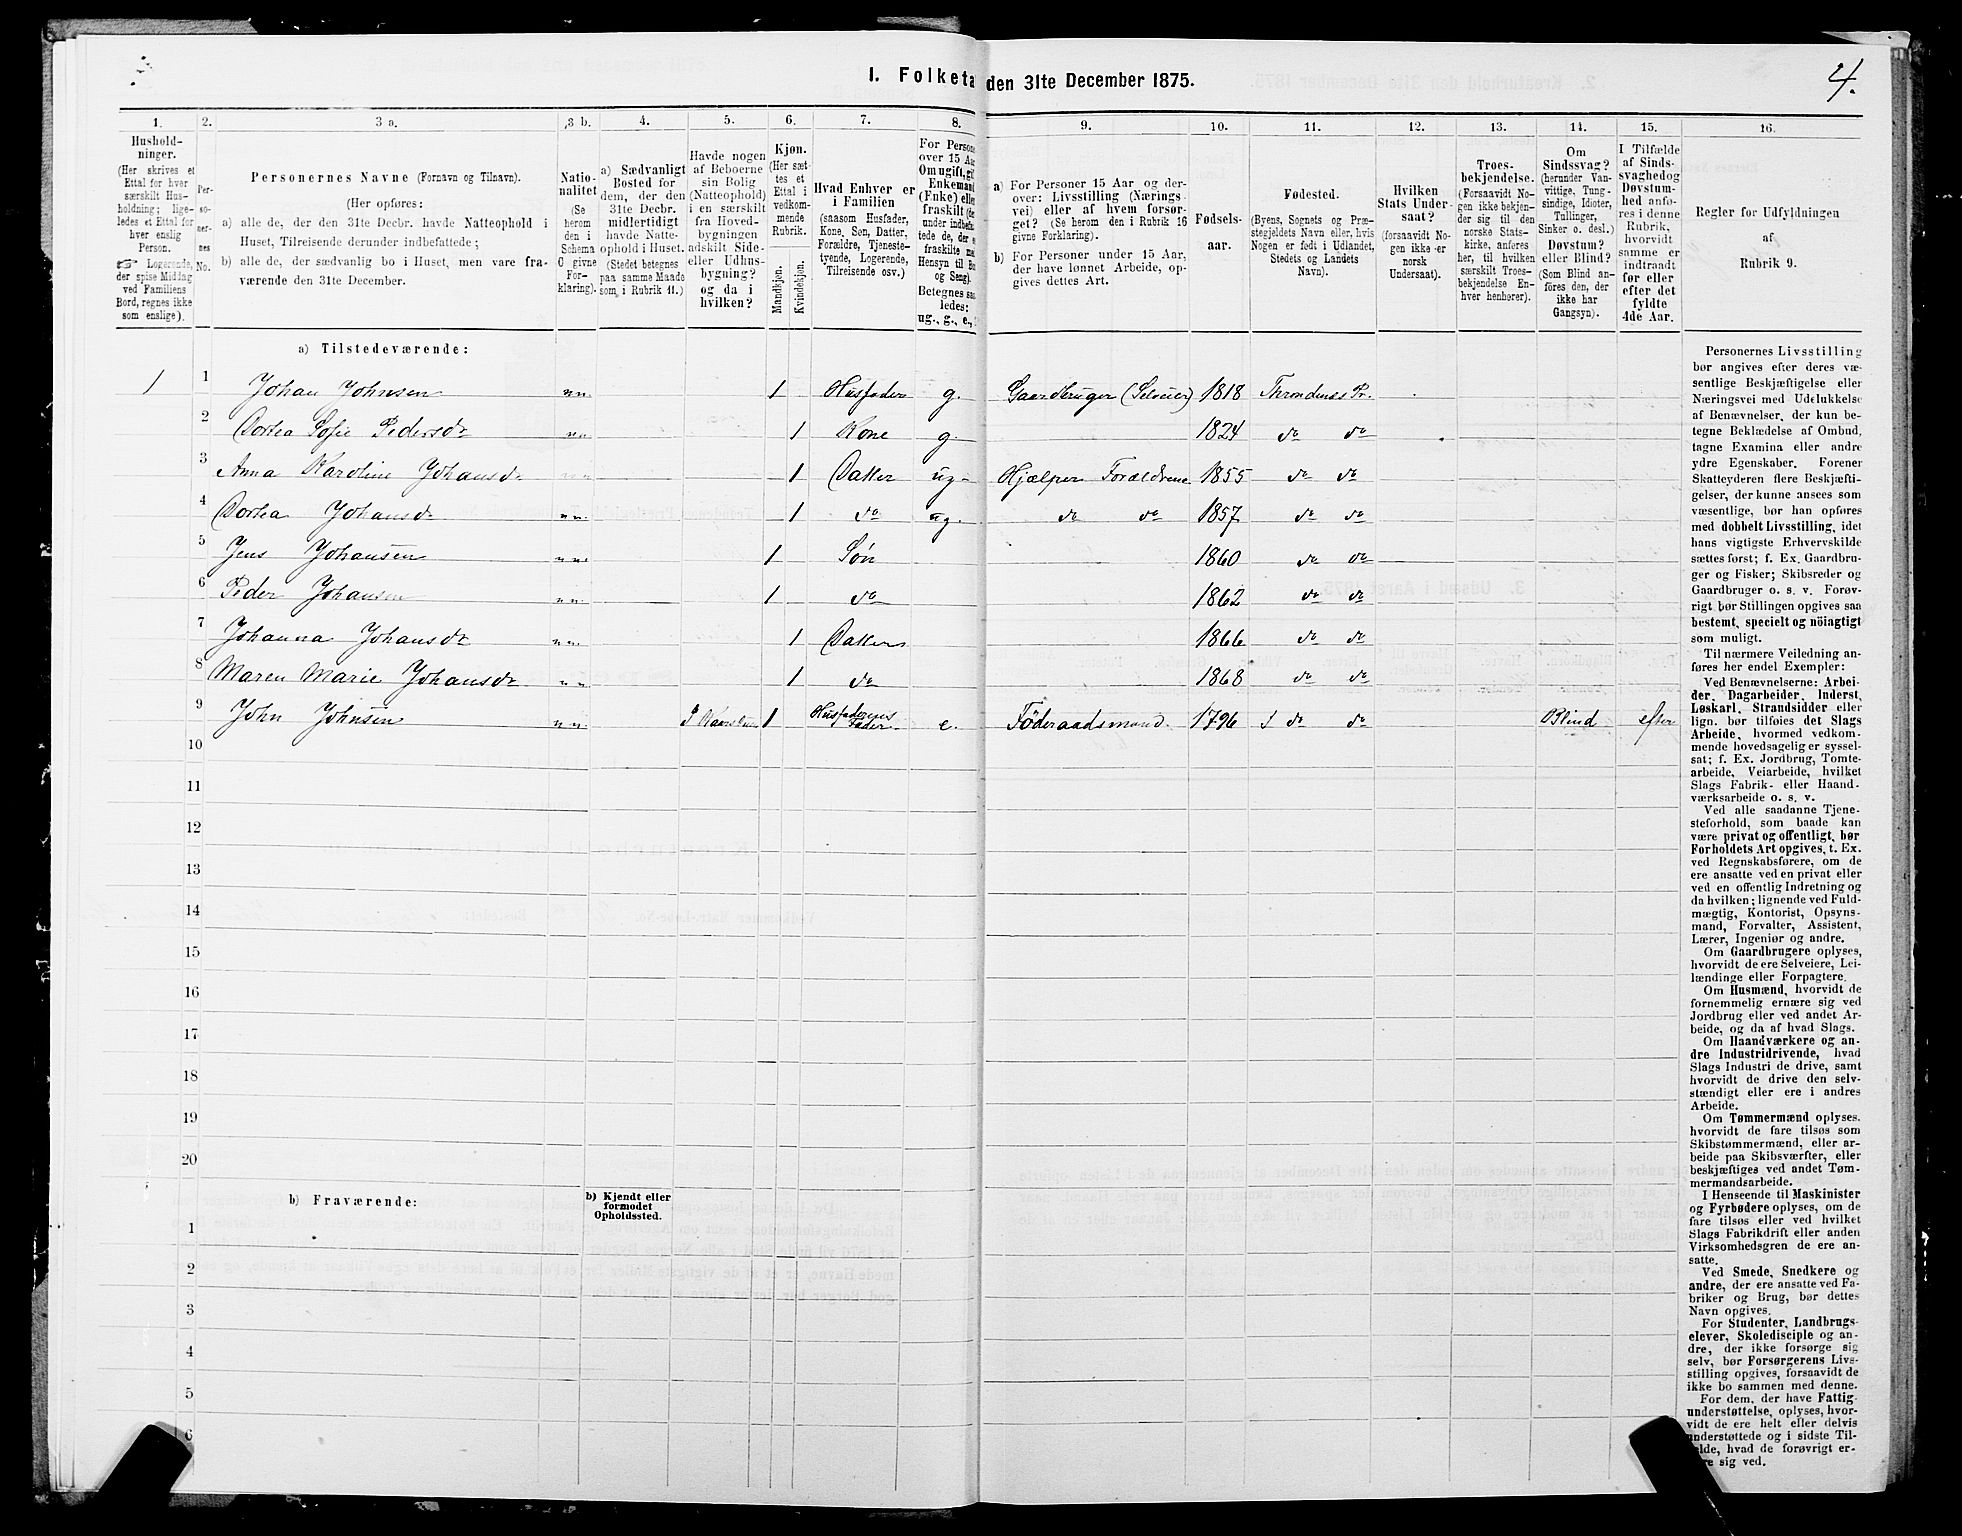 I. Folketa den 31te December 1875.
4.
1.
Hushold-
ninger.
(Her skrives et
Ettal for hver
særskilt Hus-
holdning; lige-
ledes et Ettal for
hver enslig
Person.
Logerende,
der spise Middag
ved Familiens
Bord, regnes ikke
som enslige).
2.
Per-
so-
ner-
nes
No.
3 a.
Personernes Navne (Fornavn og Tilnavn).
(Her opføres:
a) alle de, der den 31te Decbr. havde Natteophold i
Huset, Tilreisende derunder indbefattede;
b) alle de, der sædvanlig bo i Huset, men vare fra-
værende den 31te December.
3 b.
Natio-
nalitet
(Se
herom
den i
Schema
C givne
For-
klaring).
4.
a) Sædvanligt
Bosted for
dem, der den
31te Decbr.
havde Natte-
ophold i Huset.
(Stedet betegnes
paa samme Maade
som i Rubrik 11.)
5.
Havde nogen
af Beboerne
sin Bolig
(Natteophold)
i en særskilt
fra Hoved-
bygningen
adskilt Side-
eller Udhus-
bygning?
og da i
hvilken?
6.
Kjøn.
(Her sæt-
tes et
Ettal i
vedkom-
mende
Rubrik.
Mandkjøn.
Kvindekjøn.
7.
Hvad Enhver er
i Familien
(saasom Husfader,
Kone, Søn, Datter,
Forældre, Tjeneste-
tyende, Logerende,
Tilreisende osv.)
8.
For Persone
over 15 Aa
Om ugift, gif
Enkemand
(Enke) elle
fraskilt
under indbefa
tede de, der e
fraskilte me
Hensyn til Bo
og Seng).
Betegnes saa
ledes:
ug., g., e.,
9.
a) For Personer 15 Aar og der-
over: Livsstilling (Nærings-
vei) eller af hvem forsør-
get? (Se herom den i Rubrik 16
givne Forklaring).
b) For Personer under 15 Aar,
der have lønnet Arbeide, op-
gives dettes Art.
10.
Fødsels-
aar.
11.
Fødested.
(Byens, Sognets og Præ-
stegjeldets Navn eller, hvis
Nogen er født i Udlandet,
Stedets og Landets
Navn).
12.
Hvilken
Stats Under-
saat?
(forsaavidt No-
gen ikke er
norsk
Undersaat).
13.
Troes-
bekjendelse.
(Forsaavidt No-
gen ikke bekjen-
der sig til den
norske Stats-
kirke, anføres
her, til hvilken
særskilt Troes-
bekjendelse En-
hver henhører).
14.
Om
Sindssvag?
(herunder Van-
vittige, Tung-
sindige, Idioter,
Tullinger,
Sinker o. desl.)
Døvstum?
eller Blind?
(Som Blind an-
føres den, der
ikke har
Gangsyn).
15.
I Tilfælde
af Sinds-
svaghed og
Døvstum-
hed anfø-
res i denne
Rubrik,
hvorvidt
samme er
indtraadt
før eller
efter det
fyldte
4de Aar.
16.
Regler for Udfyldningen
af
Rubrik 9.
a) Tilstedeværende:
1 1 Johan Johnsen n.n. 1 Husfader g. Gaardbruger (Selveier) 1818 Throndenæs Pr.
2 Dortea Sofie Pedersdr n.n. 1 Kone g. 1824 do do
3 Anna Karoline Johansdr n.n. 1 Datter ug. Hjælper Forældrene 1855 do do
4 Dortea Johansdr n.n. 1 do ug. do do 1857 do do
5 Jens Johansen n.n. 1 Søn 1860 do do
6 Peder Johansen n.n. 1 do 1862 do do
7 Johanna Johansdr n.n. 1 Datter 1866 do do
8 Maren Marie Johansdr n.n. 1 do 1868 do do
9 John Johnsen n.n. 1 Husfaderens Fader e. Føderaadsmand 1796 do do Blind efter
10
11
12
13
14
15
16
17
18
19
20
b) Fraværende:
b) Kjendt eller
formodet
Opholdssted.
1
2
3
4
5
6
Personernes Livsstilling
bør angives efter deres væ-
sentlige Beskjæftigelse eller
Næringsvei med Udelukkelse
af Benævnelser, der kun be-
tegne Beklædelse af Ombud,
tagne Examina eller andre
ydre Egenskaber. Forener
Skatteyderen flere Beskjæfti-
gelser, der kunne ansees som
væsentlige, bør han opføres
med dobbelt Livsstilling, idet
hans vigtigste Erhvervskilde
sættes først; f. Ex. Gaardbru-
ger og Fisker; Skibsreder og
Gaardbruger o. s. v. Forøv-
rigt bør Stillingen opgives saa
bestemt, specielt og nöiagtigt
som muligt.
Til nærmere Veiledning an-
føres her endel Exempler:
Ved Benævnelserne: Arbei-
der, Dagarbeider, Inderst,
Løskarl, Strandsidder eller
lign. bør tilføies det Slags
Arbeide, hvormed vedkom-
mende hovedsagelig er syssel-
sat; f. Ex. Jordbrug, Tomte-
arbeide, Veiarbeide, hvilket
Slags Fabrik- eller Haand-
værksarbeide o. s. v.
Ved alle saadanne Tjene-
steforhold, som baade kan
være privat og offentligt, bør
Forholdets Art opgives, t. Ex.
ved Regnskabsførere, om de
ere ansatte ved en privat eller
ved en offentlig Indretning og
da hvilken; lignende ved Fuld-
mægtig, Kontorist, Opsyns-
mand, Forvalter, Assistent,
Lærer, Ingeniør og andre.
Om Gaardbrugere oplyses,
hvorvidt de ere Selveiere, Lei-
lændinge eller Forpagtere.
Om Husmænd, hvorvidt de
fornemmelig ernære sig ved
Jordbrug eller ved andet Ar-
beide, og da af hvad Slags.
Om Haandværkere og an-
dre Industridrivende, hvad
Slags Industri de drive, samt
hvorvidt de drive den selv-
stændigt eller ere i andres
Arbeide.
Om Tømmermænd oplyses,
hvorvidt de fare tilsøs som
Skibstømmermænd, eller ar-
beide paa Skibsværfter, eller
beskjæftiges ved andet Tøm-
mermandsarbeide.
I Henseende til Maskinister
og Fyrbødere oplyses, om de
fare tilsøs eller ved hvilket
Slags Fabrikdrift eller anden
Virksomhedsgren de ere an-
satte.
Ved Smede, Snedkere og
andre, der ere ansatte ved Fa-
briker og Brug, bør dettes
Navn opgives.
For Studenter, Landbrugs-
elever, Skoledisciple og an-
dre, der ikke forsørge sig
selv, bør Forsørgerens Livs-
stilling opgives, forsaavidt de
ikke bo sammen med denne.
For dem, der have Fattig-
understøttelse, oplyses, hvor-
vidt de ere helt eller delvis
understøttede og i sidste Til-
fælde, hvad de forøvrigt er-
sig ved.